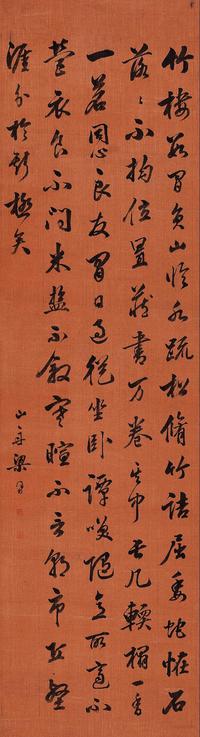 竹樓數間負山臨水疏松脩竹詰屈委蛇怪石
落〻不拘位置藏書万卷其中長几輭榻一香
一茗同心良友閒日過從坐臥譚笑隨意所適不
營衣食不問米鹽不敘寒暄不言朝市丘壑
涯分於斯極矣
山舟梁同書